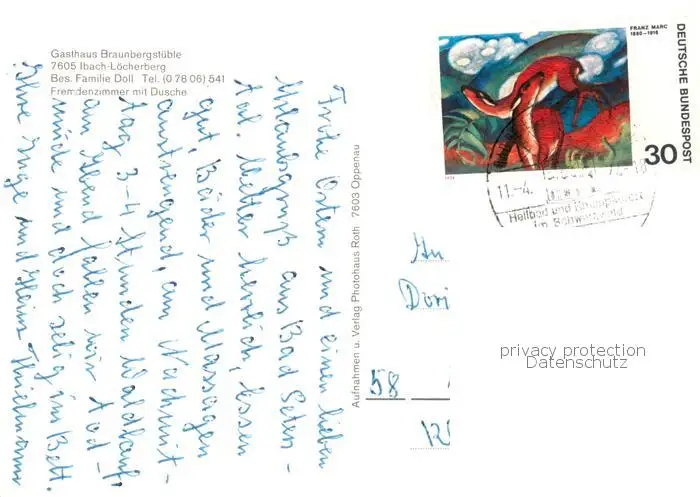 Gasthaus Braunbergstüble
7605 Ibach-Löcherberg
Bes. Familie Doll Tel. (0 78 06) 541
Fremdenzimmer mit Dusche
Frohe Ostern und einen lieben
Urlaubsgruß aus Bad Peters-
tal. Wetter herrlich, Essen
gut, Bäder und Massagen
anstrengend, am Nachmit-
tag 3-4 Stunden Waldlauf,
am Abend fallen wir tod-
müde und doch selig ins Bett.
Ihre Inge und Heinz Thielmann
Aufnahmen u. Verlag Photohaus Roth 7603 Oppenau
FRANZ MARC
1880-1916
DEUTSCHE BUNDESPOST
30
1974
11.-4.
Heilbad und
im Schwarzwald
An
58
privacy protection
Datenschutz